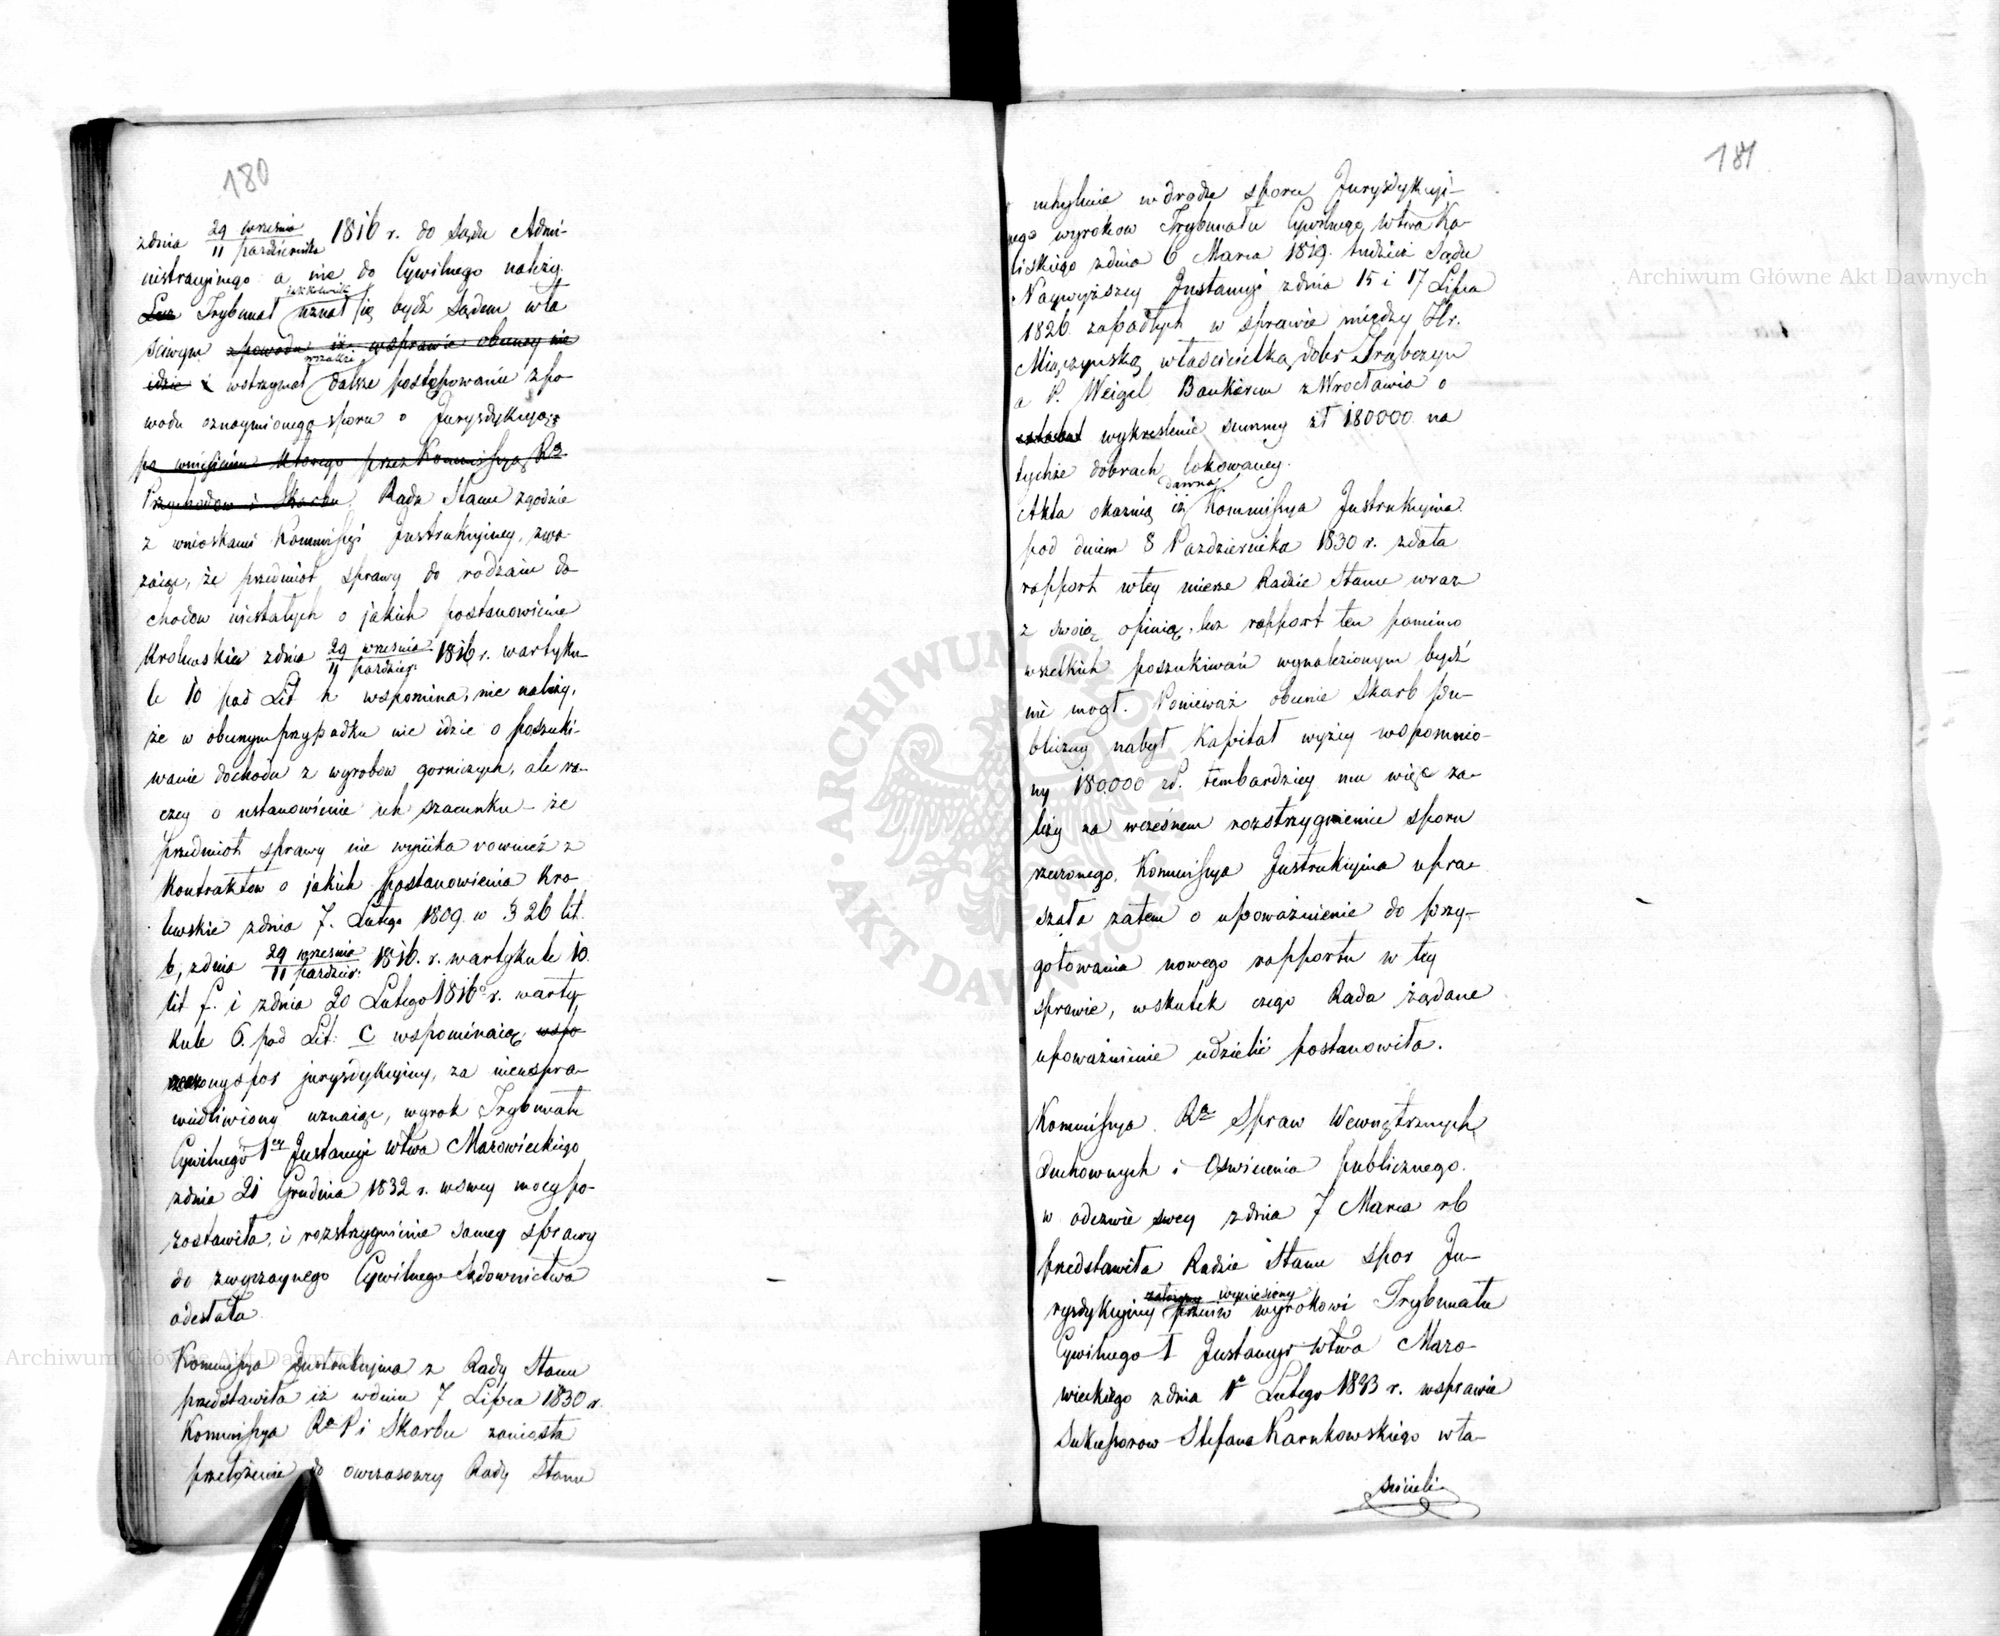 180
zdnia 29 września / 11 października 1816 r. do Sądu Admi-
nistracyinego a nie do Cywilnego należy.
Lecz Trybunał uznał się bydź Sądem wła
ściwym zpowodu iż wsprawie obecney nie
idzie i wszakże wstrzymał dalsze postępowanie zpo-
wodu oznaymionego sporu o Jurysdykcyą
po wniesieniu którego przez Kommissyą Rą
Przychodow i Skarbu. Rada Stanu zgodnie
z wnioskami Kommissyi Instrukcyiney, zwa-
żaiąc, że przedmiot sprawy do rodzaiu do
chodow niestałych o jakich postanowienie
Krolewskie zdnia 29 września / 11 paździer: 1816 r. wartyku-
le 10 pod Lit h wspomina, nie należy,
że w obecnym przypadku nie idzie o poszuki-
wanie dochodu z wyrobow gorniczych, ale ra-
czey o ustanowienie ich szacunku – że
przedmiot sprawy nie wynika rownież z
Kontraktów o jakich postanowienia Kro
lewskie zdnia 7. Lutego 1809. w § 26 lit.
b, zdnia 29 września / 11 paździer: 1816. r. wartykule 10.
lit f. i zdnia 20 Lutego 1816 r. warty-
kule 6. pod Lit: C wspominaią, wspo
ony spor jurysdykcyiny, za nieuspra-
wiedliwiony uznaiąc, wyrok Trybunału
Cywilnego 1ey Instancyi Wtwa Mazowieckiego
zdnia 21 Grudnia 1832 r. wswey mocy po-
zostawiła, i rozstrzygnienie samey sprawy
do zwyczaynego Cywilnego Sądownictwa
odesłała.
Kommissya Instrukcyina z Rady Stanu
przedstawiła iż wdniu 7 Lipca 1830 r.
Kommissya Ra P i Skarbu zaniosła
przełożenie do owczasowey Rady Stanu
181
uchylenie wdrodze sporu Jurysdykcyi-
nego wyrokow Trybunału Cywilnego Wtwa Ka-
liskiego zdnia 6 Marca 1819. tudzież Sądu
Naywyższey Instancyi zdnia 15 i 17 Lipca
1826 zapadłych w sprawie między Hr.
Miączyńską właścicielką dobr Trąbczyn
a P. Weigel Bankierem z Wrocławia o
wykreslenie summy zł 180000 na
tychże dobrach lokowaney.
Akta okazuią iż dawna Kommissya Instrukcyina
pod dniem 8 Pazdziernika 1830 r. zdała
rapport wtey mierze Radzie Stanu wraz
z swoią opinią, lecz rapport ten pomimo
wszelkich poszukiwań wynalezionym bydź
nie mogł. Ponieważ obecnie Skarb pu-
bliczny nabył Kapitał wyżey wspomnio-
ny 180,000 zł. tembardziey mu więc za-
leży na wczesnem rozstrzygnieniu sporu
rzeczonego. Kommissya Instrukcyina upra-
szała zatem o upoważnienie do przy-
gotowania nowego rapportu w tey
sprawie, wskutek czego Rada żądane
upoważnienie udzielić postanowiła.
Kommissya Ra Spraw Wewnętrznych
Duchownych i Oświecenia publicznego.
w odezwie swey zdnia 7 Marca rb
przedstawiła Radzie Stanu spor Ju-
rysdykcyiny wyniesiony przeciw wyrokowi Trybunału
Cywilnego 1 Instancyi Wtwa Mazo-
wieckiego zdnia 1o Lutego 1833 r. wsprawie
Sukcessorow Stefana Karnkowskiego wła-
ścicieli
Archiwum Główne Akt Dawnych
Archiwum Główne Akt Dawnych
ARCHIWUM GŁÓWNE AKT DAWNYCH